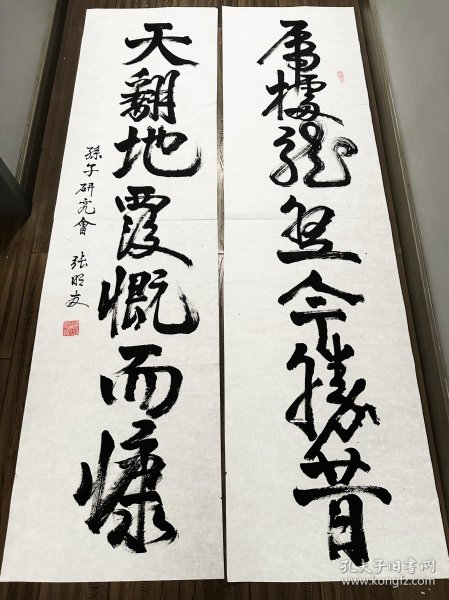 虎據龍盤今勝昔
天翻地覆慨而慷
孫子研究會 張明友
孔夫子旧书网
www.kongfz.com